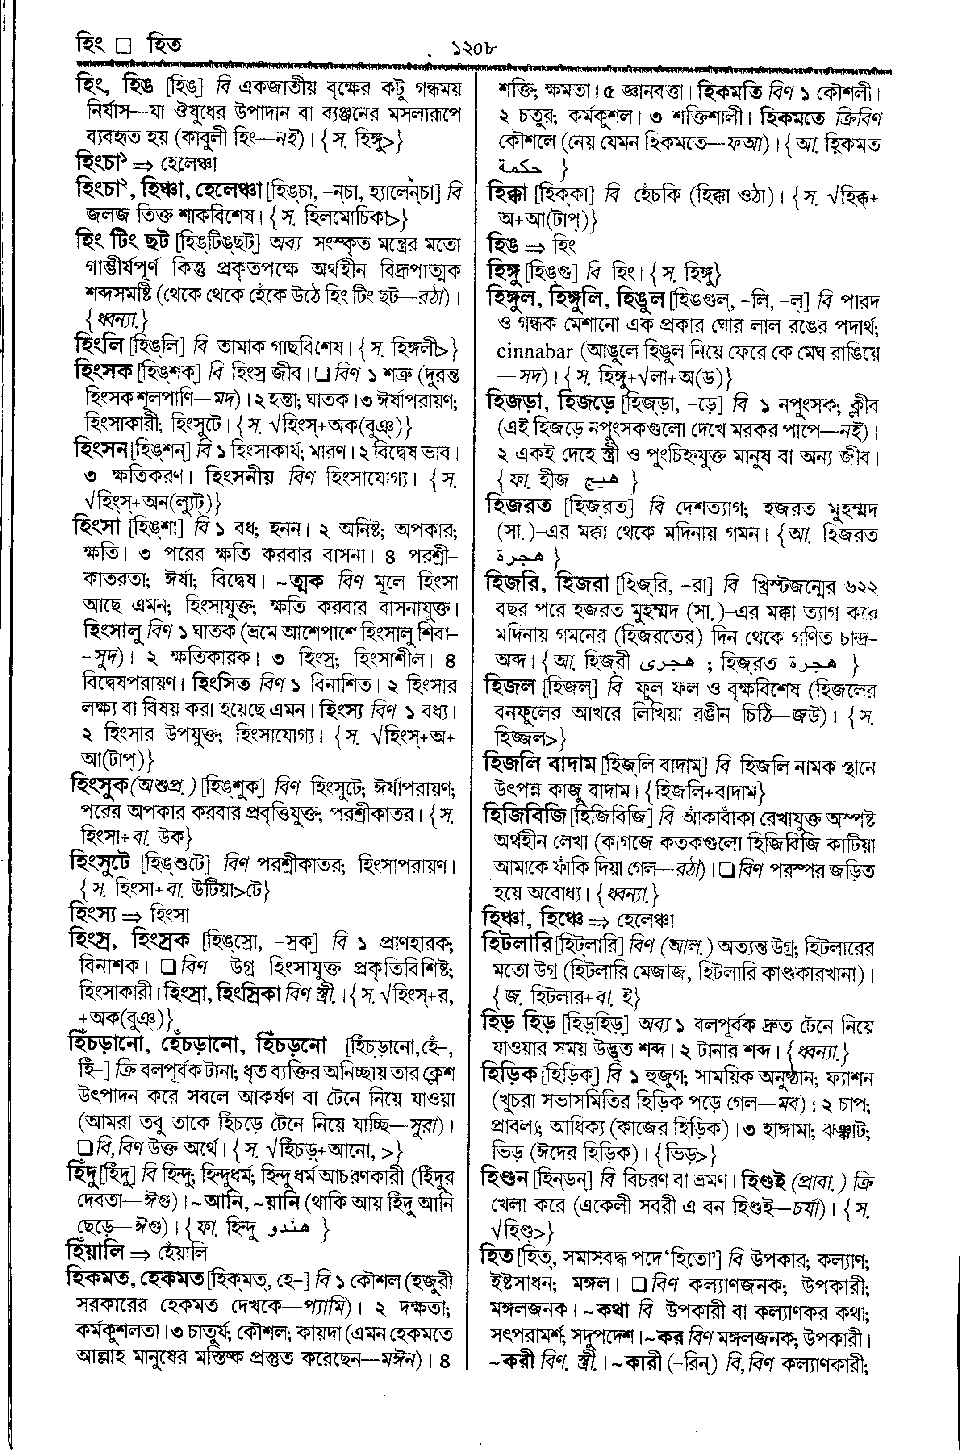 হিং □ হিত
১২০৮
হিং, হিঙ [হিঙ্] বি একজাতীয় বৃক্ষের কটু গন্ধময়
নির্যাস—যা ঔষুধের উপাদান বা ব্যঞ্জনের মসলারূপে
ব্যবহৃত হয় (কাবুলী হিং—নই)। {স. হিঙ্গু>}
হিংচা১ ⇒ হেলেঞ্চা
হিংচা২, হিঞ্চা, হেলেঞ্চা [হিঙ্চা, -নচা, হ্যালেন্‌চা] বি
জলজ তিক্ত শাকবিশেষ। {স. হিলমোচিকা>}
হিং টিং ছট [হিঙ্‌টিঙ্‌ছট্] অব্য সংস্কৃত মন্ত্রের মতো
গাম্ভীর্যপূর্ণ কিন্তু প্রকৃতপক্ষে অর্থহীন বিদ্রূপাত্মক
শব্দসমষ্টি (থেকে থেকে হেঁকে উঠে হিং টিং ছট—রঠা)।
{ধ্বন্যা.}
হিংলি [হিঙ্‌লি] বি তামাক গাছবিশেষ। {স. হিঙ্গলী>}
হিংসক [হিঙ্‌শক্] বি হিংস্র জীব। □ বিণ ১ শত্রু (দুরন্ত
হিংসক শূলপাণি—মদ)। ২ হন্তা; ঘাতক। ৩ ঈর্ষাপরায়ণ;
হিংসাকারী; হিংসুটে। {স. √হিংস্+অক(বুঞ্)}
হিংসন [হিঙ্‌শন্] বি ১ হিংসাকার্য; মারণ। ২ বিদ্বেষ ভাব।
৩ ক্ষতিকরণ। হিংসনীয় বিণ হিংসাযোগ্য। {স.
√হিংস্+অন(ল্যুট)}
হিংসা [হিঙ্‌শা] বি ১ বধ; হনন। ২ অনিষ্ট; অপকার;
ক্ষতি। ৩ পরের ক্ষতি করবার বাসনা। ৪ পরশ্রী-
কাতরতা; ঈর্ষা; বিদ্বেষ। ~ত্মক বিণ মূলে হিংসা
আছে এমন; হিংসাযুক্ত; ক্ষতি করবার বাসনাযুক্ত।
হিংসালু বিণ ১ ঘাতক (ভ্রমে আশেপাশে হিংসালু শিবা-
-সুদ)। ২ ক্ষতিকারক। ৩ হিংস্র; হিংসাশীল। ৪
বিদ্বেষপরায়ণ। হিংসিত বিণ ১ বিনাশিত। ২ হিংসার
লক্ষ্য বা বিষয় করা হয়েছে এমন। হিংস্য বিণ ১ বধ্য।
২ হিংসার উপযুক্ত; হিংসাযোগ্য। {স. √হিংস্+অ+
আ(টাপ্)}
হিংসুক (অশুপ্র.) [হিঙ্‌শুক্] বিণ হিংসুটে; ঈর্ষাপরায়ণ;
পরের অপকার করবার প্রবৃত্তিযুক্ত; পরশ্রীকাতর। {স.
হিংসা+বা. উক}
হিংসুটে [হিঙ্‌শুটে] বিণ পরশ্রীকাতর; হিংসাপরায়ণ।
{স. হিংসা+বা. উটিয়া>টে}
হিংস্য ⇒ হিংসা
হিংস্র, হিংস্রক [হিঙ্‌স্রো, -স্রক] বি ১ প্রাণহারক;
বিনাশক। □ বিণ উগ্র হিংসাযুক্ত প্রকৃতিবিশিষ্ট;
হিংসাকারী। হিংস্রা, হিংস্রিকা বিণ স্ত্রী.। {স. √হিংস্+র,
+অক(বুঞ্)}
হিঁচড়ানো, হেঁচড়ানো, হিঁচড়নো [হিঁচড়ানো, হেঁ-,
হিঁ-] ক্রি বলপূর্বক টানা; ধৃত ব্যক্তির অনিচ্ছায় তার ক্লেশ
উৎপাদন করে সবলে আকর্ষণ বা টেনে নিয়ে যাওয়া
(আমরা তবু তাকে হিঁচড়ে টেনে নিয়ে যাচ্ছি—সুরা)।
□ বি, বিণ উক্ত অর্থে। {স. √হিঁচড়+আনো, >}
হিঁদু [হিঁদু] বি হিন্দু; হিন্দুধর্ম; হিন্দু ধর্ম আচরণকারী (হিঁদুর
দেবতা—ঈগু)। ~আনি, ~য়ানি (থাকি আয় হিঁদু আনি
ছেড়ে—ঈগু)। {ফা. হিন্দূ هندو }
হিঁয়ালি ⇒ হেঁয়ালি
হিকমত, হেকমত [হিক্‌মত্, হে-] বি ১ কৌশল (হজুরী
সরকারের হেকমত দেখকে—প্যামি)। ২ দক্ষতা;
কর্মকুশলতা। ৩ চাতুর্য; কৌশল; কায়দা (এমন হেকমতে
আল্লাহ মানুষের মস্তিষ্ক প্রস্তুত করেছেন—মঈন)। ৪
শক্তি; ক্ষমতা। ৫ জ্ঞানবত্তা। হিকমতি বিণ ১ কৌশলী।
২ চতুর; কর্মকুশল। ৩ শক্তিশালী। হিকমতে ক্রিবিণ
কৌশলে (নেয় যেমন হিকমতে—ফআ)। {আ. হিকমত
حكمة }
হিক্কা [হিক্‌কা] বি হেঁচকি (হিক্কা ওঠা)। {স. √হিক্ক+
অ+আ(টাপ্)}
হিঙ ⇒ হিং
হিঙ্গু [হিঙ্‌গু] বি হিং। {স. হিঙ্গু}
হিঙ্গুল, হিঙ্গুলি, হিঙুল [হিঙ্‌গুল্, -লি, -ল্] বি পারদ
ও গন্ধক মেশানো এক প্রকার ঘোর লাল রঙের পদার্থ;
cinnabar (আঙুলে হিঙুল নিয়ে ফেরে কে মেঘ রাঙিয়ে
—সদ)। {স. হিঙ্গু+√লা+অ(ড)}
হিজড়া, হিজড়ে [হিজ্‌ড়া, -ড়ে] বি ১ নপুংসক; ক্লীব
(এই হিজড়ে নপুংসকগুলো দেখে মরকর পাপে—নই)।
২ একই দেহে স্ত্রী ও পুংচিহ্নযুক্ত মানুষ বা অন্য জীব।
{ফা. হীজ هيج }
হিজরত [হিজ্‌রত্] বি দেশত্যাগ; হজরত মুহম্মদ
(সা.)-এর মক্কা থেকে মদিনায় গমন। {আ. হিজরত
هجرة }
হিজরি, হিজরা [হিজ্‌রি, -রা] বি খ্রিস্টজন্মের ৬২২
বছর পরে হজরত মুহম্মদ (সা.)-এর মক্কা ত্যাগ করে
মদিনায় গমনের (হিজরতের) দিন থেকে গণিত চান্দ্র-
অব্দ। {আ. হিজরী هجرى ; হিজরত هجرة }
হিজল [হিজল্] বি ফুল ফল ও বৃক্ষবিশেষ (হিজলের
বনফুলের আখরে লিখিয়া রঙীন চিঠি—জউ)। {স.
হিজ্জল>}
হিজলি বাদাম [হিজ্‌লি বাদাম্] বি হিজলি নামক স্থানে
উৎপন্ন কাজু বাদাম। {হিজলি+বাদাম}
হিজিবিজি [হিজিবিজি] বি আঁকাবাঁকা রেখাযুক্ত অস্পষ্ট
অর্থহীন লেখা (কাগজে কতকগুলো হিজিবিজি কাটিয়া
আমাকে ফাঁকি দিয়া গেল—রঠা)। □ বিণ পরস্পর জড়িত
হয়ে অবোধ্য। {ধ্বন্যা.}
হিঞ্চা, হিঞ্চে ⇒ হেলেঞ্চা
হিটলারি [হিট্‌লারি] বিণ (আল.) অত্যন্ত উগ্র; হিটলারের
মতো উগ্র (হিটলারি মেজাজ, হিটলারি কাণ্ডকারখানা)।
{জ. হিটলার+বা. ই}
হিড় হিড় [হিড়্‌হিড়্] অব্য ১ বলপূর্বক দ্রুত টেনে নিয়ে
যাওয়ার সময় উদ্ভূত শব্দ। ২ টানার শব্দ। {ধ্বন্যা.}
হিড়িক [হিড়িক্] বি ১ হুজুগ; সাময়িক অনুষ্ঠান; ফ্যাশন
(খুচরা সভাসমিতির হিড়িক পড়ে গেল—মব)। ২ চাপ;
প্রাবল্য; আধিক্য (কাজের হিড়িক)। ৩ হাঙ্গামা; ঝঞ্ঝাট;
ভিড় (ঈদের হিড়িক)। {ভিড়>}
হিণ্ডন [হিন্‌ডন্] বি বিচরণ বা ভ্রমণ। হিণ্ডই (প্রাবা.) ক্রি
খেলা করে (একেলী সবরী এ বন হিণ্ডই—চর্যা)। {স.
√হিণ্ড্>}
হিত [হিত্, সমাসবদ্ধ পদে ‘হিতো’] বি উপকার; কল্যাণ;
ইষ্টসাধন; মঙ্গল। □ বিণ কল্যাণজনক; উপকারী;
মঙ্গলজনক। ~কথা বি উপকারী বা কল্যাণকর কথা;
সৎপরামর্শ, সদুপদেশ। ~কর বিণ মঙ্গলজনক; উপকারী।
~করী বিণ. স্ত্রী.। ~কারী (-রিন্) বি, বিণ কল্যাণকারী;